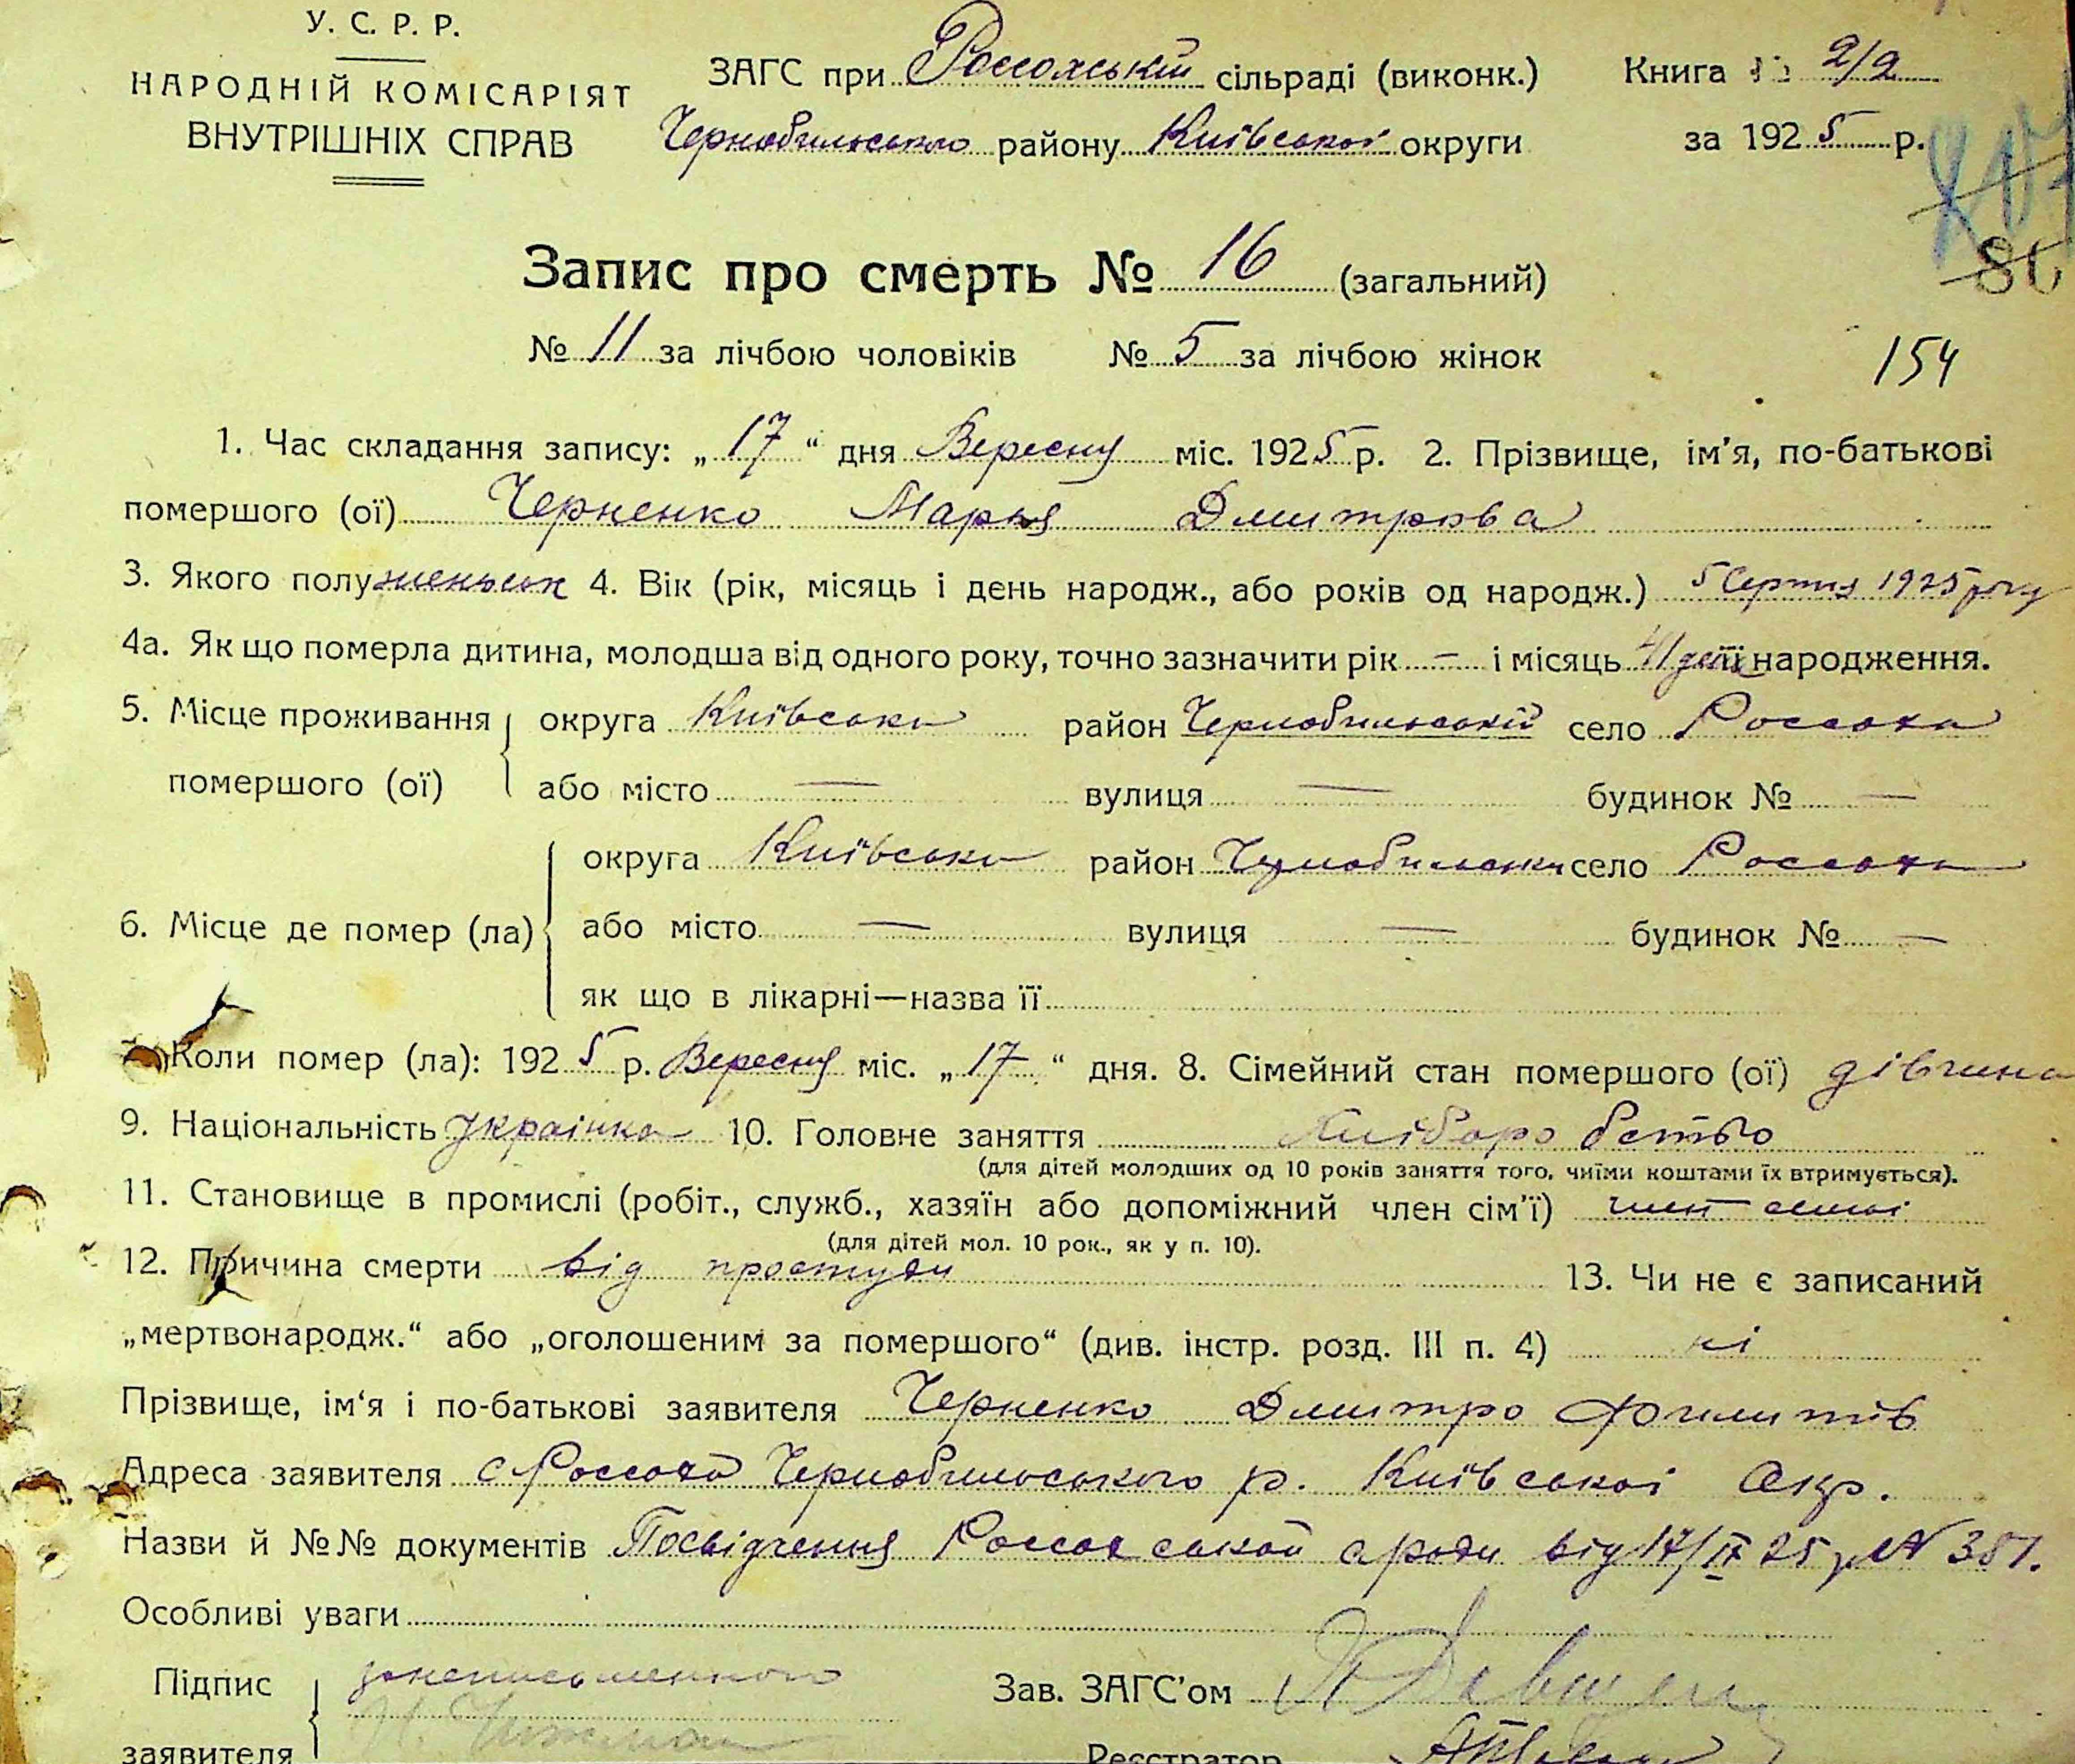 У. С. Р. Р.
НАРОДНІЙ КОМІСАРІЯТ
ВНУТРІШНІХ СПРАВ
ЗАГС при Россохській сільраді (виконк.)
Чернобильського району Київської округи
Книга № 2/2
за 1925 р.
80
Запис про смерть № 16 (загальний)
№ 11 за лічбою чоловіків № 5 за лічбою жінок
154
1. Час складання запису: „17“ дня Вересня міс. 1925 р. 2. Прізвище, ім'я, по-батькові
помершого (ої) Черненко Марья Дмитрова
3. Якого полу 4. Вік (рік, місяць і день народж., або років од народж.) 5 Серпня 1925 року
4а. Як що померла дитина, молодша від одного року, точно зазначити рік — і місяць її народження.
5. Місце проживання округа Київська район Чернобильській село Россоха
помершого (ої) або місто — вулиця — будинок № —
округа Київська район Чернобильськи село Россоха
6. Місце де помер (ла) або місто — вулиця — будинок № —
як що в лікарні—назва її
Коли помер (ла): 1925 р. Вересня міс. „17“ дня. 8. Сімейний стан помершого (ої) дівчина
9. Національність Українка 10. Головне заняття Хліборобство
(для дітей молодших од 10 років заняття того, чиїми коштами їх втримується).
11. Становище в промислі (робіт., служб., хазяїн або допоміжний член сім'ї) член семьі
(для дітей мол. 10 рок., як у п. 10).
12. Причина смерти від простуди 13. Чи не є записаний
„мертвонародж.“ або „оголошеним за помершого“ (див. інстр. розд. III п. 4) ні
Прізвище, ім'я і по-батькові заявителя Черненко Дмитро
Адреса заявителя с Россоха Чернобильського р. Київської Окр.
Назви й №№ документів Посвідчення Россохської від 17/IX 25 р №
Особливі уваги
Підпис
заявителя
Зав. ЗАГС'ом
Реєстратор